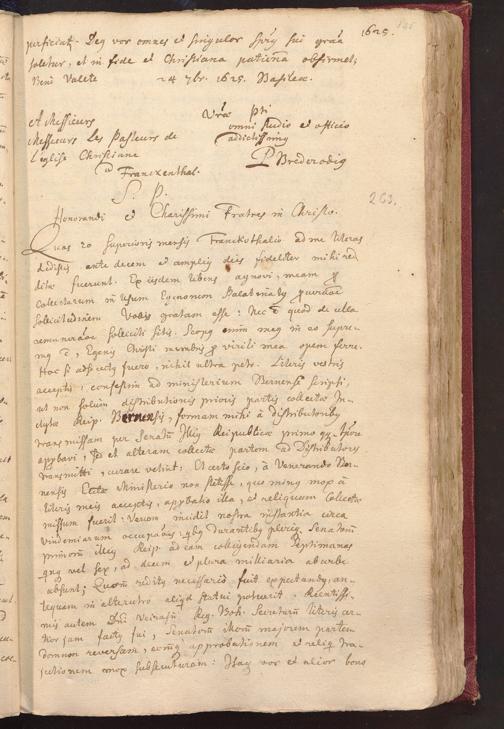 1625.
perficiat. Deq vor omnes et singulos spũ sui grãa
soletur, et in fide et Christiana patientia obfirmet;
Beni Valete 24 7br. 1625. Basileæ.
Vr̃æ pti
omni studio et officio
addictissimq
PBrederodiq
A Messieurs
Messieurs Les Pasteurs de
L'eglise Chrestiane
à Franckenthal.
S. P.
263.
Honorandi et Charissimi Fratres in Christo.
Quas 20 superioris mensis Franckothalio ad me literas
dedistis ante decem et amplius dies fideliter mihi red
ditæ fuerunt. Ex iisdem libens agnovi, meam p
collectarum in usum Egenorum Palatinatq
sollicitudinem Vobis gratam esse: Nec ẽ quod de ulla
remuneraõe solliciti sitis. Scopq enim meq in eo supre-
mq ẽ, Egenis Christi membris p virili mea opem ferre.
Hoc si adsecutq fuero, nihil ultra peto. Literis vestris
acceptis, confestim ad ministerium Bernense scripsi,
ut non solum distributionis prioris partis collectæ In-
clytæ Reip. Bernensis, formam mihi à distributoribq
transmissam per Senatũ Illiq Reipublicæ primo qq tpore
approbari, sed et alteram collectæ partem ad Distributores
transmitti, curare velint: Et certo scio, à Venerando Ber-
nensis Ecclæ Ministerio non stetisse, quo minq mox à
literis meis acceptis, approbatio illa, et reliquum Collectæ
missum fuerit: Verum incidit nostra instantia circa
vindemiarum occupaões, qbq durantibq pleriq Senatorũ
primorũ illiq Reip. ad eam colligendam septimanas
qnq vel sex, ad decem et plura milliaria ab urbe
absunt; Quorũ reditq necessario fuit expectandq, an-
tequam in alterutro aliqd statui potuerit. Recentissi-
mis autem Dñi Veirasũ Reg. Boh. Secretarũ literis cer-
tior jam factq fui, Senatorũ illorũ majorem partem
domum reversam, eorũq approbationem et reliq tra-
ductionem mox subsecuturam: Itaq vor et alior bono